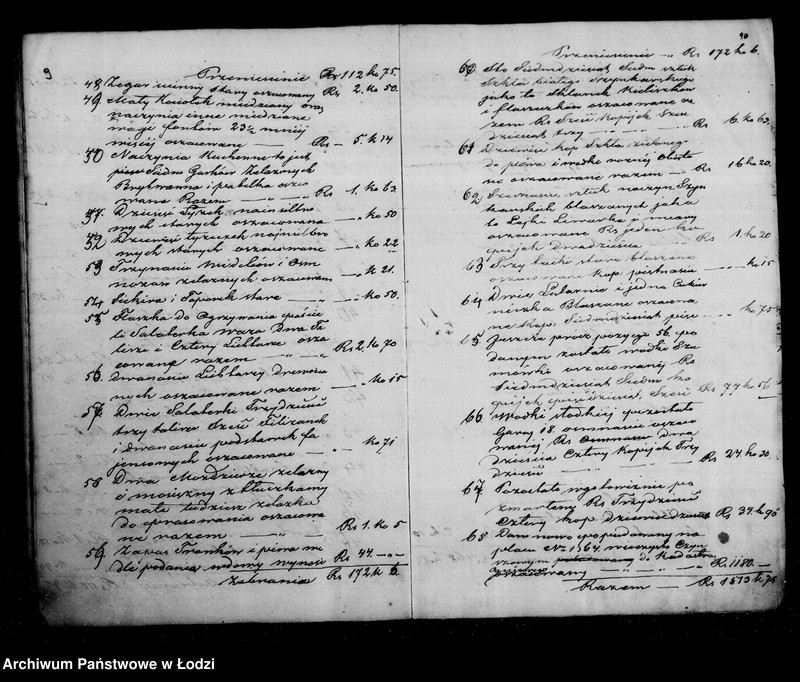 9
Przeniesienie Rs 112 ko 75.
48 Zegar ścienny stary oszacowany Rs 2. ko 50.
49 Mały Kociołek miedziany oraz
naczynia inne miedziane
wagi fontów 23½ mniej
więcej oszacowane — Rs — 5. k 14
50 Naczynia Kuchenne to jest
Siedm Garków żelaznych
Brytwanna i patelka osza
wane Razem — Rs 1. ko 63.
51. Dziesięć Łyżek
mych starych oszacowane — ko 50
52 Dziewięć łyżeczek
mych starych oszacowane — ko 22
53 Trzynaście Widelców i Osm
nożów żelaznych oszacowane — k 21.
54 Siekiera i Toporek stare — ko 50.
55 Flaszka do Ogrzewania
li Salaterka waza Dwa Ta
lerze i Cztery Lichtarze osza
cowane razem — Rs 2. ko 70
56. Dwanaście Lichtarzy drewnia
nych oszacowane razem — ko 15
57 Dwie Salaterki Trzydzieści
trzy talerze Sześć Filiżanek
i dwanaście podstawek fa
jansowych oszacowane — ko 71
58 Dwa Moździerze żelazny
i mosiężny z tłuczkami
małe tudzież żelazka
do prasowania oszacowa
ne razem — Rs 1. ko 5
59 Zapas Trunków i piwa we
dle podania wdowy wynosi Rs 44. —
Zebrania Rs 172 k 6.
10
Przeniesienie — Rs 172 ko 6.
60 Sto Siedmdziesiąt Siedm sztuk
Szkła białego Szynkarskiego
jako to Szklanek Kieliszków
i flaszeczków oszacowane ra
zem Rs Sześć Kopijek Sześć
dziesiąt trzy — Rs 6. ko 63.
61 Dziewięć kop Szkła zielonego
do piwa i wódki
ne oszacowane razem — Rs 16 ko 20.
62 sztuk naczyń Szyn
karskich blaszanych jako
to Lejki Liwarki i miary
oszacowane Rs jeden ko
pijek dwadzieścia — Rs 1. ko 20
63 Trzy stare blaszane
oszacowane kop. piętnaście — ko 15
64 Dwie Latarnie i jedna Cukier
niczka Blaszane oszacowa
ne kop. Siedmdziesiąt pięć — ko 75
65 Jeszcze prócz pozycyi 56. po
danym zostało wódki Szu
mówki oszacowanej Rs
Siedmdziesiąt Siedm ko
pijek pięćdziesiąt Sześć Rs 77 ko 56
66 Wódki słodkiej pozostało
Garcy 18. osmnaście oszaco
wanej Rs Osmnaście dwa
dzieścia Cztery Kopijek Trzy
dzieści — Rs 24 ko 30.
67 Pozostało w gotowiznie po
zmarłym Rs Trzydzieści
Cztery kop dziewiędziesiąt Rs 34. k 90
68 Dom nowo wybudowany na
placu No 1364. wieczysto Czyn
szowym do Kadastru
oszacowany — Rs 1180. —
Razem — Rs 1513 k 75
Archiwum Państwowe w Łodzi